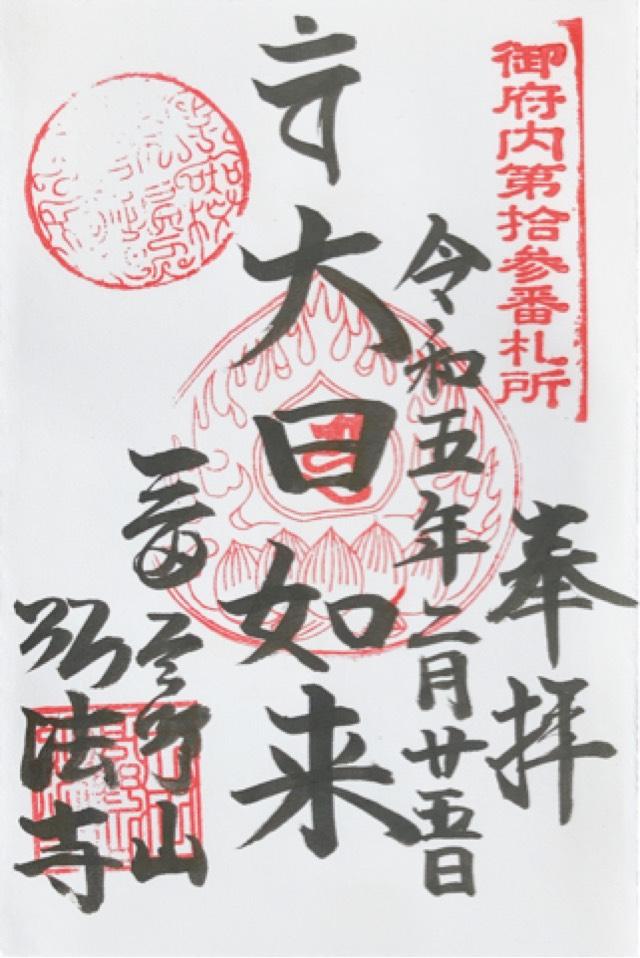 御府内第拾参番札所
奉拝
令和五年二月廿五日
大日如来
三田
山
弘法寺